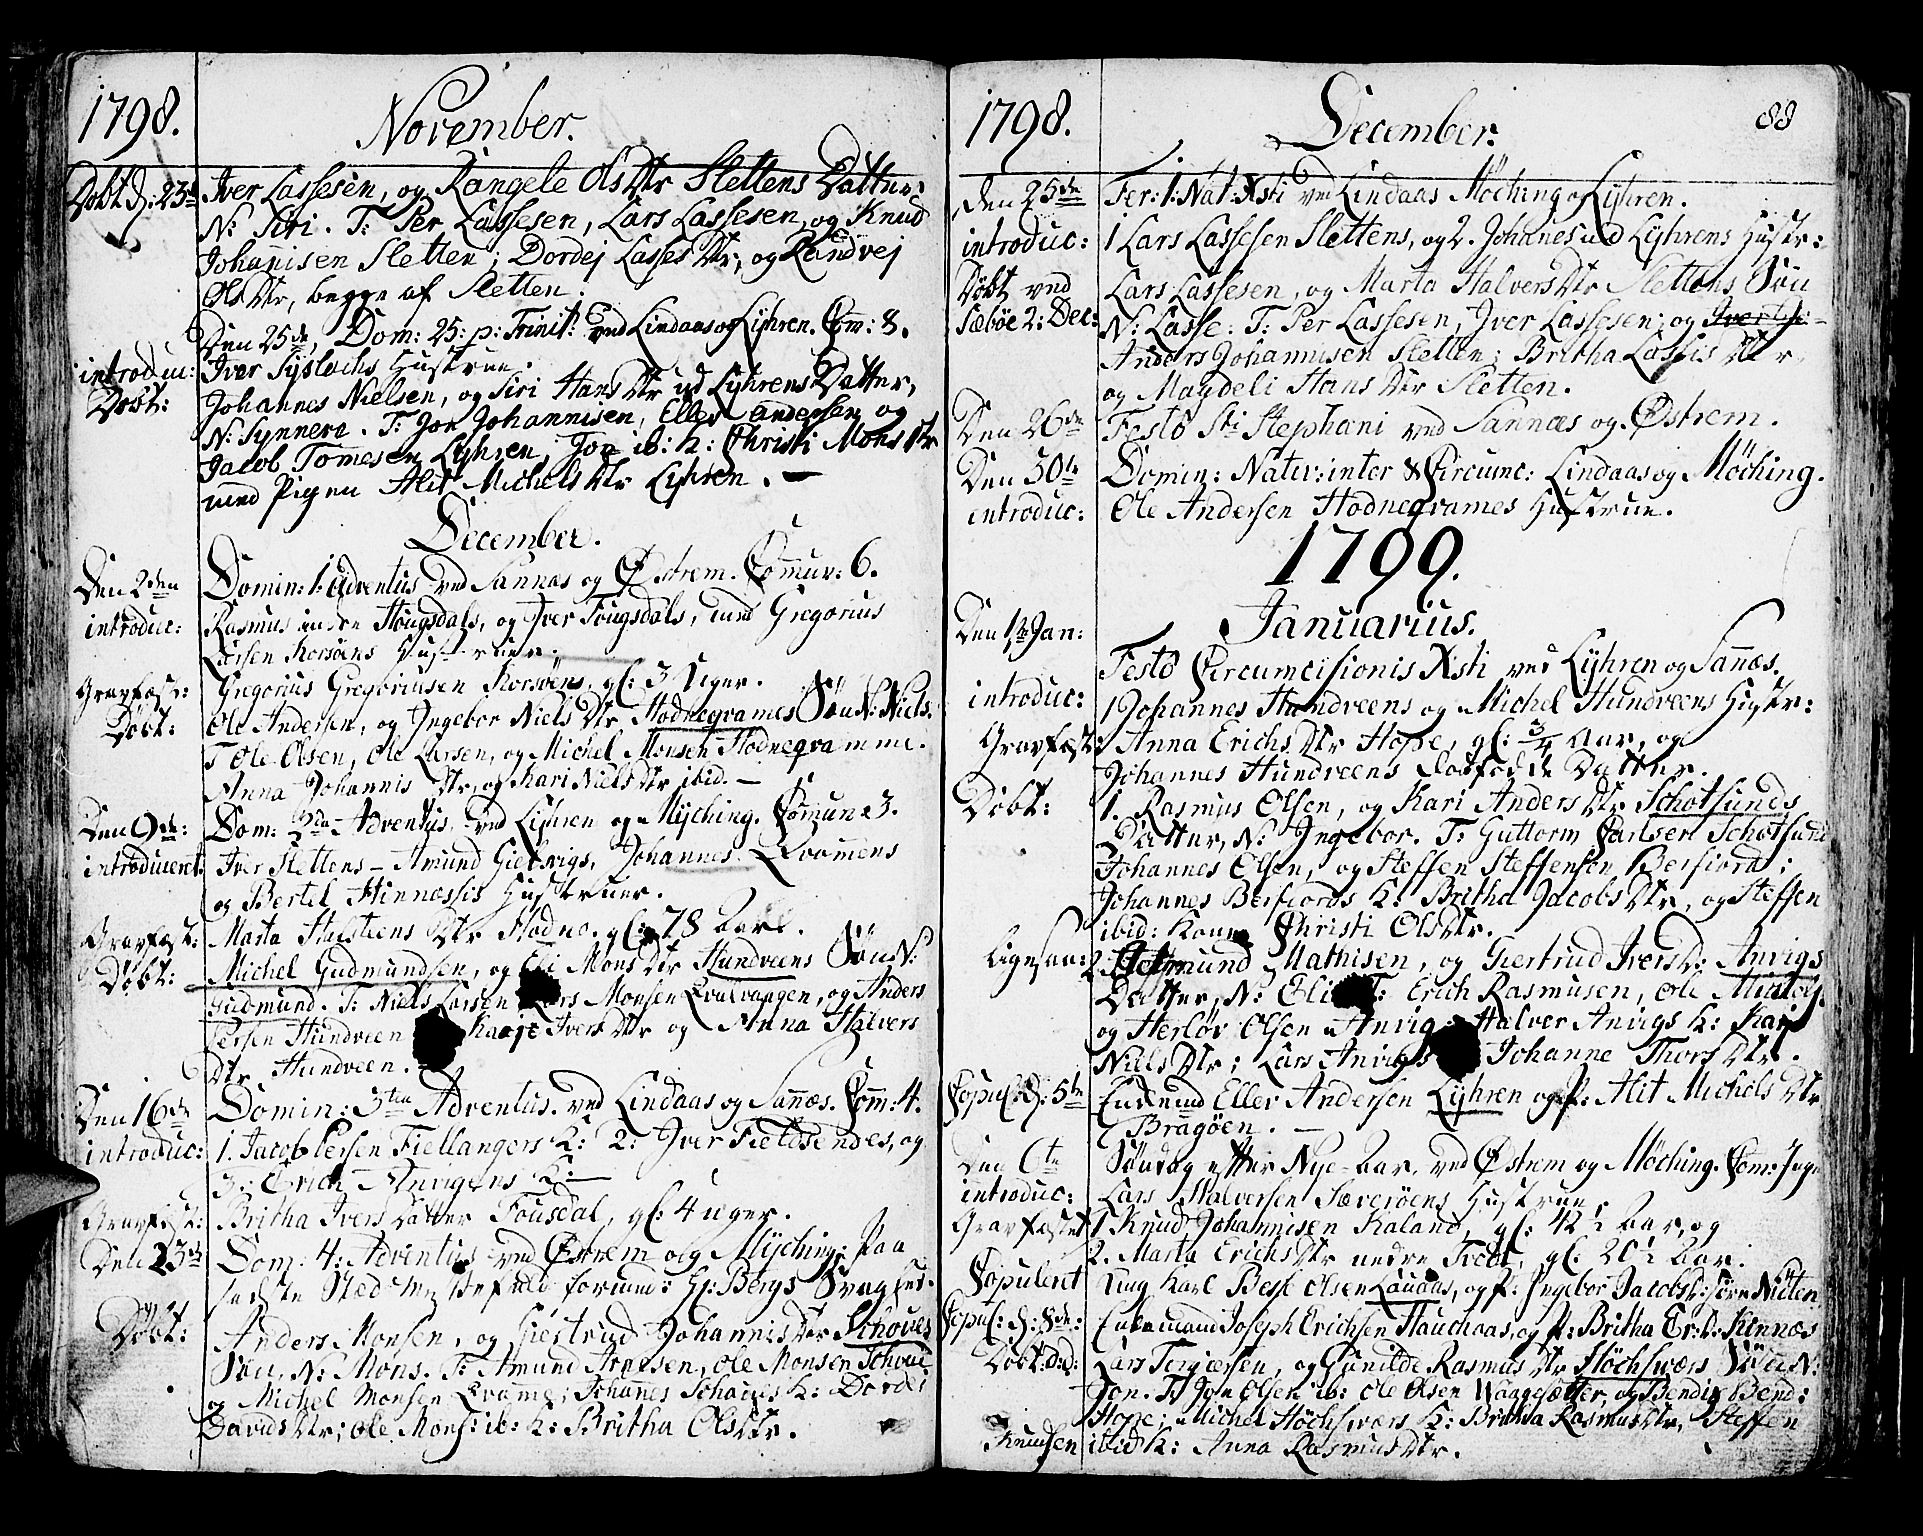 1798.
November.
Døbt d: 23de Iver Lassesen, og Rangele Ols Dtr Slettens Datter
N: Siri. T: Per Lassesen, Lars Lassesen, og Knud
Johannisen Sletten; Dordej Lasses Dtr, og Randvej
Ols Dtr, begge af Sletten.
Den 25de, Dom: 25: p: Trinit: ved Lindaas og Lyhren. Com: 8.
introduc: Iver Syslachs Hustrue.
Døbt: Johannes Nielsen, og Siri Hans Dtr ud Lyhrens Datter,
N: Synnera. T: Jon Johannisen, Eller Andersen og
Jacob Tomesen Lyhren, Jon ib: K: Christi Mons Dtr
med Pigen Alit Michels Dtr Lyhren.
December.
Den 2den Domin: 1: Adventus ved Sannæs og Østrem. Commun: 6.
introduc: Rasmus indre Hougsdals, og Iver Fougsdals, med Gregorius
Larsen Korsøens Hustruer.
Gravfæst: Gregorius Gregoriusen Korsøens, gl: 3 Uger.
Døbt: Ole Andersen, og Ingebor Niels Dtr Hodnegrames Søn N: Niels.
T Ole Olsen, Ole Larsen, og Michel Monsen Hodnegramme.
Anna Johannis Dtr, og Kari Niels Dtr ibid.
Den 9de: Dom: 2da Adventus, ved Lyhren og Myching. Comun: 3.
introduceret: Iver Slettens - Amund Gielsvigs, Johannes Qvamens
og Bertel Hinnæssis Hustruer.
Gravfæst: Marta Halsteens Dtr Hodne. gl: 78 Aar.
Døbt: Michel Gudmundsen, og Eli Mons Dtr Hundveens Søn N:
Gudmund. T: Niels Larsen Lars Monsen Qvalvaagen, og Anders
Persen Hundveen Kaari Ivers Dtr og Anna Halvers
Dtr Hundveen.
Den 16de Domin: 3tia Adventus. ved Lindaas og Sannæs. Com: 4.
introduc: 1. Jacob Persen Fiellangers K: 2: Iver Fieldsendes, og
3: Erich Anvigens K:
Gravfæst: Britha Ivers Datter Fousdal, gl: 4 uger.
Den 23de Dom: 4: Adventus ved Østrem og Myching; Paa
sidste Sted Hr: Bergs Svaghed.
Døbt: Anders Monsen, og Giertrud Johannis Dtr Schoues
Søn, N: Mons. T: Amund Arnesen, Ole Monsen Schoue
og Michel Monsen Qvame; Johannes Schoues K: Dordei
Davids Dtr; Ole Mons: ib: K: Britha Ols Dtr.
1798.
December.
88
Den 25de Fer: 1: Nat: Xsti ved Lindaas Möching og Lyhren.
introduc: 1 Lars Lassesen Slettens, og 2. Johannes ud Lyhrens Hustr:
Døbt ved Lars Lassesen, og Marta Halvers Dtr Slettens Søn
Sæbøe 2: Dec: N: Lasse. T: Per Lassesen, Iver Lassesen; og
Anders Johannisen Sletten; Britha Lassis Dtr,
og Magdeli Hans Dtr Sletten.
Den 26de Festo Sti Stephani ved Sannæs og Østrem.
Den 30te Domin: Nativ: inter & Circumc: Lindaas og Möching.
introduc: Ole Andersen Hodnegrames Hustrue.
1799.
Januarius.
Den 1ste Jan: Festo Circumcisionis Xsti ved Lyhren og Sannæs.
introduc: 1 Johannes Hundveens og Michel Hundveens Hustr:
Gravfæst: Anna Erichs Dtr Hope, gl: 3/4 Aar, og
Johannes Hundveens dødfødde Datter.
Døbt: 1. Rasmus Olsen, og Kari Anders Dtr Schotsunds
Datter, N: Ingebor. T: Guttorm Carlsen Schotsund
Johannes Olsen, og Steffen Steffensen Berfiord;
Johannes Berfiords K: Britha Jacobs Dtr, og Steffen
ibid: Kone Christi Ols Dtr.
Ligesaa: 2. Mathisen, og Giertrud Ivers D: Anvigs
Datter, N: Eli T: Erich Rasmusen, Ole
og Herlov Olsen Anvig. Halver Anvigs K: Kari
Niels Dtr; Lars Anvigs Johanne Thors Dtr.
Copul: d: 5te Enkemand Eller Andersen Lyhren og P: Alit Michels Dtr
Bragøen.
Den 6te Søndag efter Nye-Aar, ved Østrem og Möching. Com: Ingen
introduc: Lars Halversen Sæverøens Hustrue
Gravfæstet 1 Knud Johannisen Kaland, gl: 42 1/2 Aar, og
2. Marta Erichs Dtr nedre Tvedt, gl: 20 1/2 Aar.
Copuleret Ung Karl Besse Olsen Lauaas, og P: Ingebor Jacobs D:
Copul: d: 8de: Enkemand Joseph Erichsen Hauchaas, og P: Britha Er: D: Kinnæs
Døbt: d:d: Lars Teriersen, og Gunilde Rasmus Dtr Høchsværs Søn N:
Jon. T: Jon Olsen ib: Ole Olsen Waagesætter, og Bendix Bend:
Hope; Michel Høchsværs K: Britha Rasmus Dtr, Steffen
Knudsen ibid K: Anna Rasmus Dtr.